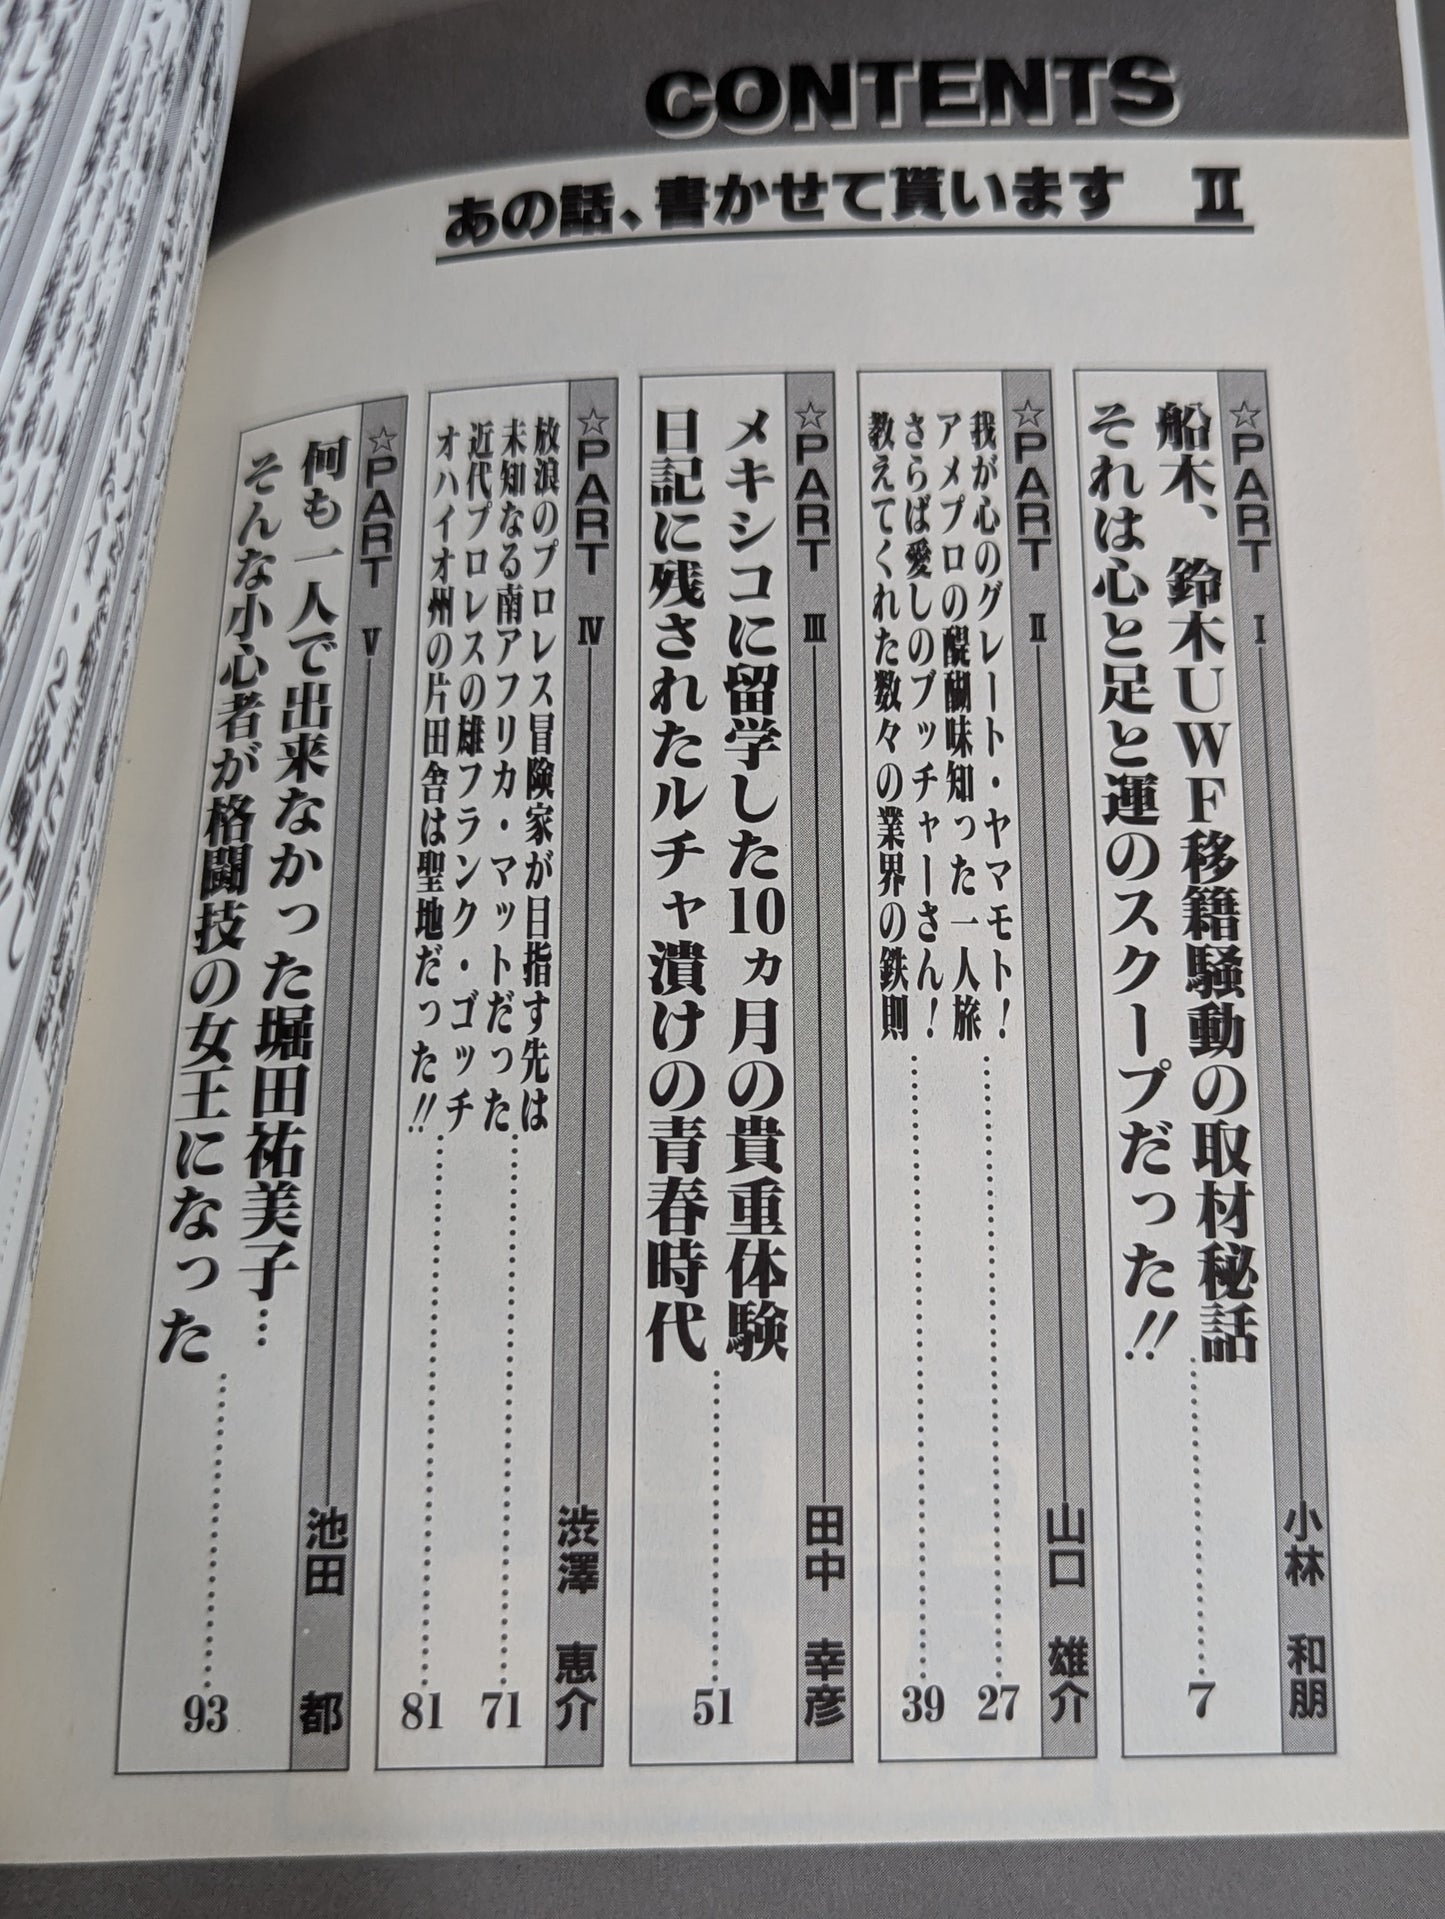 CONTENTS
あの話、書かせて貰います　Ⅱ
☆PART　Ⅰ　小林　和朋
船木、鈴木UWF移籍騒動の取材秘話
それは心と足と運のスクープだった!!　7
☆PART　Ⅱ　山口　雄介
我が心のグレート・ヤマモト!
アメプロの醍醐味知った一人旅　27
さらば愛しのブッチャーさん!
教えてくれた数々の業界の鉄則　39
☆PART　Ⅲ　田中　幸彦
メキシコに留学した10ヵ月の貴重体験
日記に残されたルチャ漬けの青春時代　51
☆PART　Ⅳ　渋澤　恵介
放浪のプロレス冒険家が目指す先は
未知なる南アフリカ・マットだった　71
近代プロレスの雄フランク・ゴッチ
オハイオ州の片田舎は聖地だった!!　81
☆PART　Ⅴ　池田　都
何も一人で出来なかった堀田祐美子…
そんな小心者が格闘技の女王になった　93